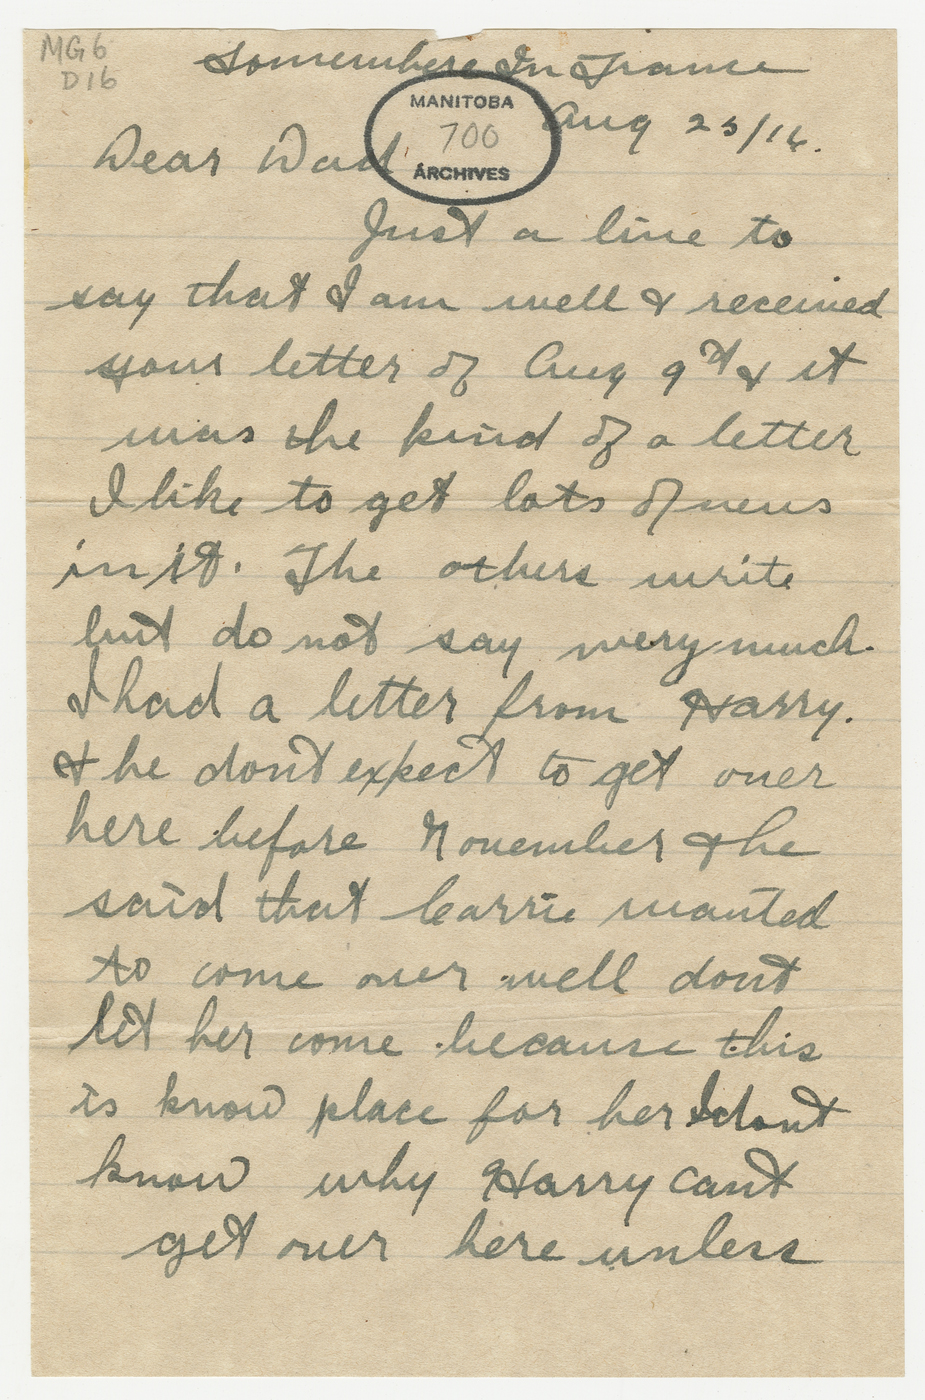 MG6
D16
Somewhere In France
MANITOBA
700
ARCHIVES
Aug 25/16.
Dear Dad
Just a line to
say that I am well & received
your letter of Aug 9th & it
was the kind of a letter
I like to get lots of news
in it. The others write
but do not say very much.
I had a letter from Harry.
& he dont expect to get over
here before November & he
said that Carrie wanted
to come over well dont
let her come because this
is know place for her I dont
know why Harry cant
get over here unless